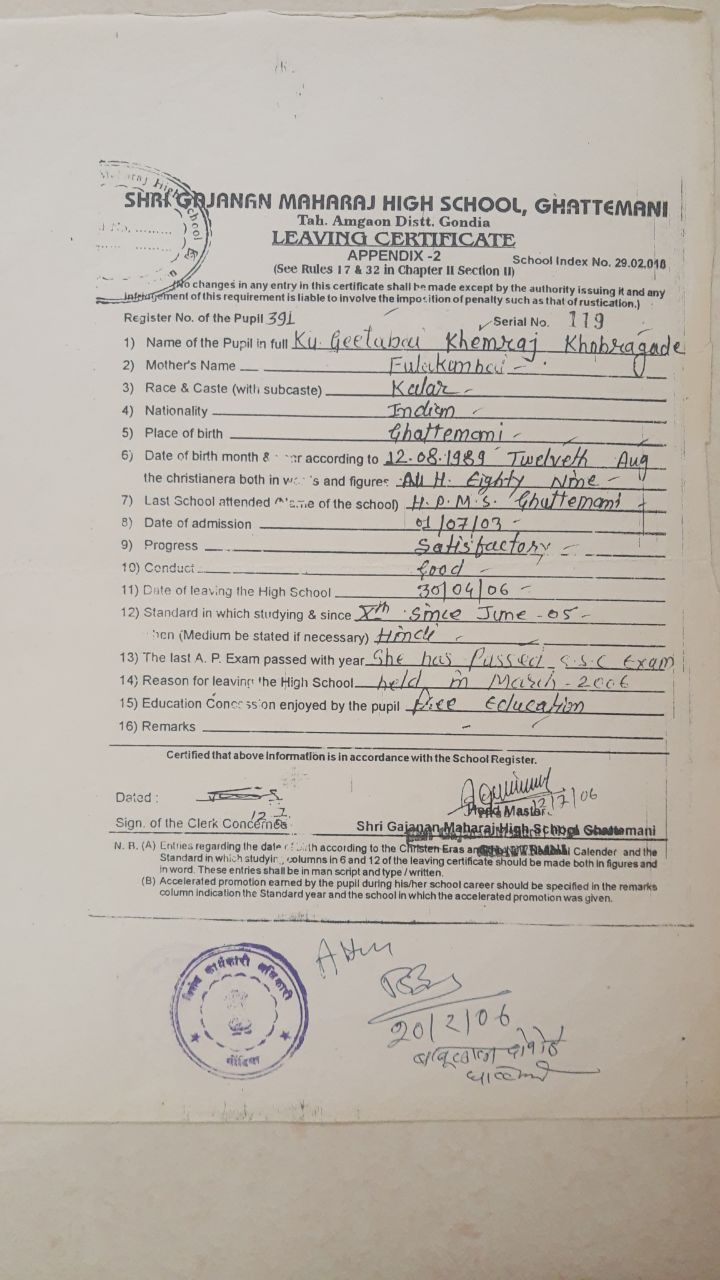 SHRI GAJANAN MAHARAJ HIGH SCHOOL, GHATTEMANI
Tah. Amgaon Distt. Gondia
LEAVING CERTIFICATE
APPENDIX -2
School Index No. 29.02.018
(See Rules 17 & 32 in Chapter II Section II)
(No changes in any entry in this certificate shall be made except by the authority issuing it and any
infringement of this requirement is liable to involve the imposition of penalty such as that of rustication.)
Register No. of the Pupil 391 Serial No. 119
1) Name of the Pupil in full Ku. Geetabai Khemraj Khobragade
2) Mother's Name Fulakanbai
3) Race & Caste (with subcaste) Kalar
4) Nationality Indian
5) Place of birth Ghattemani
6) Date of birth month & according to 12.08.1989 Twelveth Aug
the christianera both in and figures H. Eighty Nine
7) Last School attended (Name of the school) H.P.M.S. Ghattemani
8) Date of admission 01/07/03
9) Progress Satisfactory
10) Conduct Good
11) Date of leaving the High School 30/04/06
12) Standard in which studying & since Xth Since June -05
(Medium be stated if necessary) Hindi
13) The last A. P. Exam passed with year She has Passed S.S.C Exam
14) Reason for leaving the High School held in March-2006
15) Education Concession enjoyed by the pupil Free Education
16) Remarks -
Certified that above information is in accordance with the School Register.
Dated :
Head Master 12/7/06
Sign. of the Clerk Concerned 12 7 06
Shri Gajanan Maharaj High School Ghattemani
N. B. (A) Entries regarding the date of birth according to the Christen Eras and Calender and the
Standard in which studying, columns in 6 and 12 of the leaving certificate should be made both in figures and
in word. These entries shall be in man script and type / written.
(B) Accelerated promotion earned by the pupil during his/her school career should be specified in the remarks
column indication the Standard year and the school in which the accelerated promotion was given.
विशेष कार्यकारी अधिकारी
गोंदिया
20/2/06